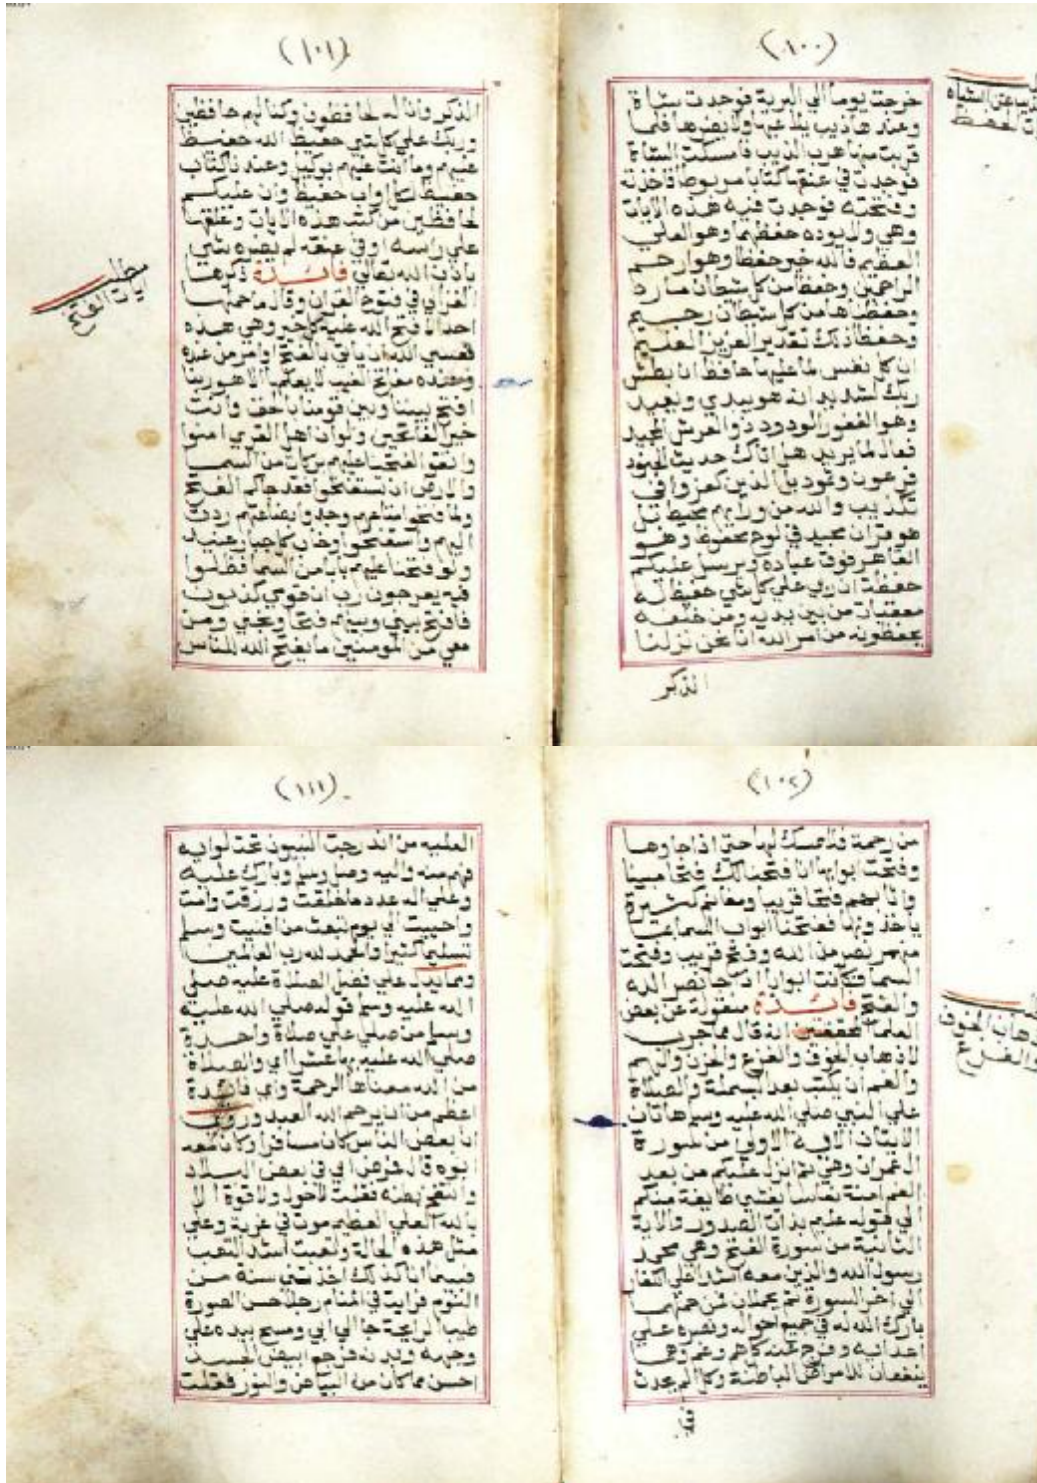 (١٠٠)
خرجت يوما الي البرية فوجدت شاة
وعندها ذيب يلاعبها ولا يضرها فلما
قربت منها هرب الذيب فامسكت الشاة
فوجدت في عنقها كتابا مربوطا فاخذته
وفتحته فوجدت فيه هذه الايات
وهي ولا يوده حفظهما وهو العلي
العظيم فالله خير حفظا وهو ارحم
الراحمين وحفظا من كل شيطان مارد
وحفظناها من كل شيطان رجيم
وحفظا ذلك تقدير العزيز العليم
ان كل نفس لما عليها حافظ ان بطش
ربك لشديد انه هو يبدي ويعيد
وهو الغفور الودود ذو العرش المجيد
فعال لما يريد هل اتاك حديث الجنود
فرعون وثمود بل الذين كفروا في
تكذيب والله من ورايهم محيط بل
هو قران مجيد في لوح محفوظ وهو
القاهر فوق عباده ويرسل عليكم
حفظة ان ربي علي كل شي حفيظ له
معقبات من بين يديه ومن خلفه
يحفظونه من امر الله انا نحن نزلنا
الذكر
(١٠١)
الذكر وانا له لحافظون وكنا لهم حافظين
وربك علي كل شي حفيظ الله حفيظ
عليهم وما انت عليهم بوكيل وعندنا كتاب
حفيظ لكل اواب حفيظ وان عليكم
لحافظين من كتب هذه الايات وعلقها
علي راسه او في عنقه لم يضره شي
باذن الله تعالي فائدة ذكرها
الغزالي في فتوح القران وقال ما حملها
احد الا فتح الله عليه كل خير وهي هذه
فعسي الله ان ياتي بالفتح او امر من عنده
وعنده مفاتح الغيب لا يعلمها الا هو ربنا
افتح بيننا وبين قومنا بالحق وانت
خير الفاتحين ولو ان اهل القري امنوا
واتقوا لفتحنا عليهم بركات من السما
والارض ان تستفتحوا فقد جاكم الفتح
ولما فتحوا متاعهم وجدوا بضاعتهم ردت
اليهم واستفتحوا وخاب كل جبار عنيد
ولو فتحنا عليهم بابا من السما فظلوا
فيه يعرجون رب ان قومي كذبون
فافتح بيني وبينهم فتحا ونجني ومن
معي من المومنين ما يفتح الله للناس
مطلب
ايات الفتح
(١٠٢)
من رحمة فلا ممسك لها حتي اذا جاوها
وفتحت ابوابها انا فتحنا لك فتحا مبينا
واثابهم فتحا قريبا ومغانم كثيرة
ياخذونها ففتحنا ابواب السما بما
منهمر نصر من الله وفتح قريب وفتحت
السما فكانت ابوابا اذا جا نصر الله
والفتح فائدة منقولة عن بعض
العلما المحققين انه قال مما جرب
لاذهاب الخوف والفزع والحزن والهم
والغم ان يكتب بعد البسملة والصلاة
علي النبي صلي الله عليه وسلم هاتان
الايتان الاية الاولي من سورة
ال عمران وهي ثم انزل عليكم من بعد
الغم امنة نعاسا يغشي طايفة منكم
الي قوله عليم بذات الصدور والاية
الثانية من سورة الفتح وهي محمد
رسول الله والذين معه اشدا علي الكفار
الي اخر السورة ثم يحملان فمن حملهما
بارك الله له في جميع احواله ونصره علي
اعدائه وفرج عنه كل هم وغم وهما
ينفعان للامراض الباطنة وكل الم يحدث
ذهاب الخوف
والفزع
(١١١)
العلميه من اندرجت النبيون تحت لوايه
فهم منه واليه وصل وسلم وبارك عليه
وعلي اله عدد ما خلقت ورزقت وامت
واحييت الي يوم تبعث من افنيت وسلم
تسليما كثيرا والحمد لله رب العالمين
ومما يدل علي فضل الصلاة عليه صلي
الله عليه وسلم قوله صلي الله عليه
وسلم من صلي علي صلاة واحدة
صلي الله عليه بها عشرا اي والصلاة
من الله معناها الرحمة واي فائدة
اعظم من ان يرحم الله العبد وروي
ان بعض الناس كان مسافرا وكان معه
ابوه قال فمرض ابي في بعض البلاد
وانتفخ بطنه فقلت لا حول ولا قوة الا
بالله العلي العظيم موت في غربة وعلي
مثل هذه الحالة ولقيت اشد التعب
فبينما انا كذلك اخذتني سنة من
النوم فرايت في المنام رجلا حسن الصورة
طيب الرايحة جا الي ابي ومسح بيده علي
وجهه وبدنه فرجع ابيض الجسد
احسن مما كان من البياض والنور فقلت